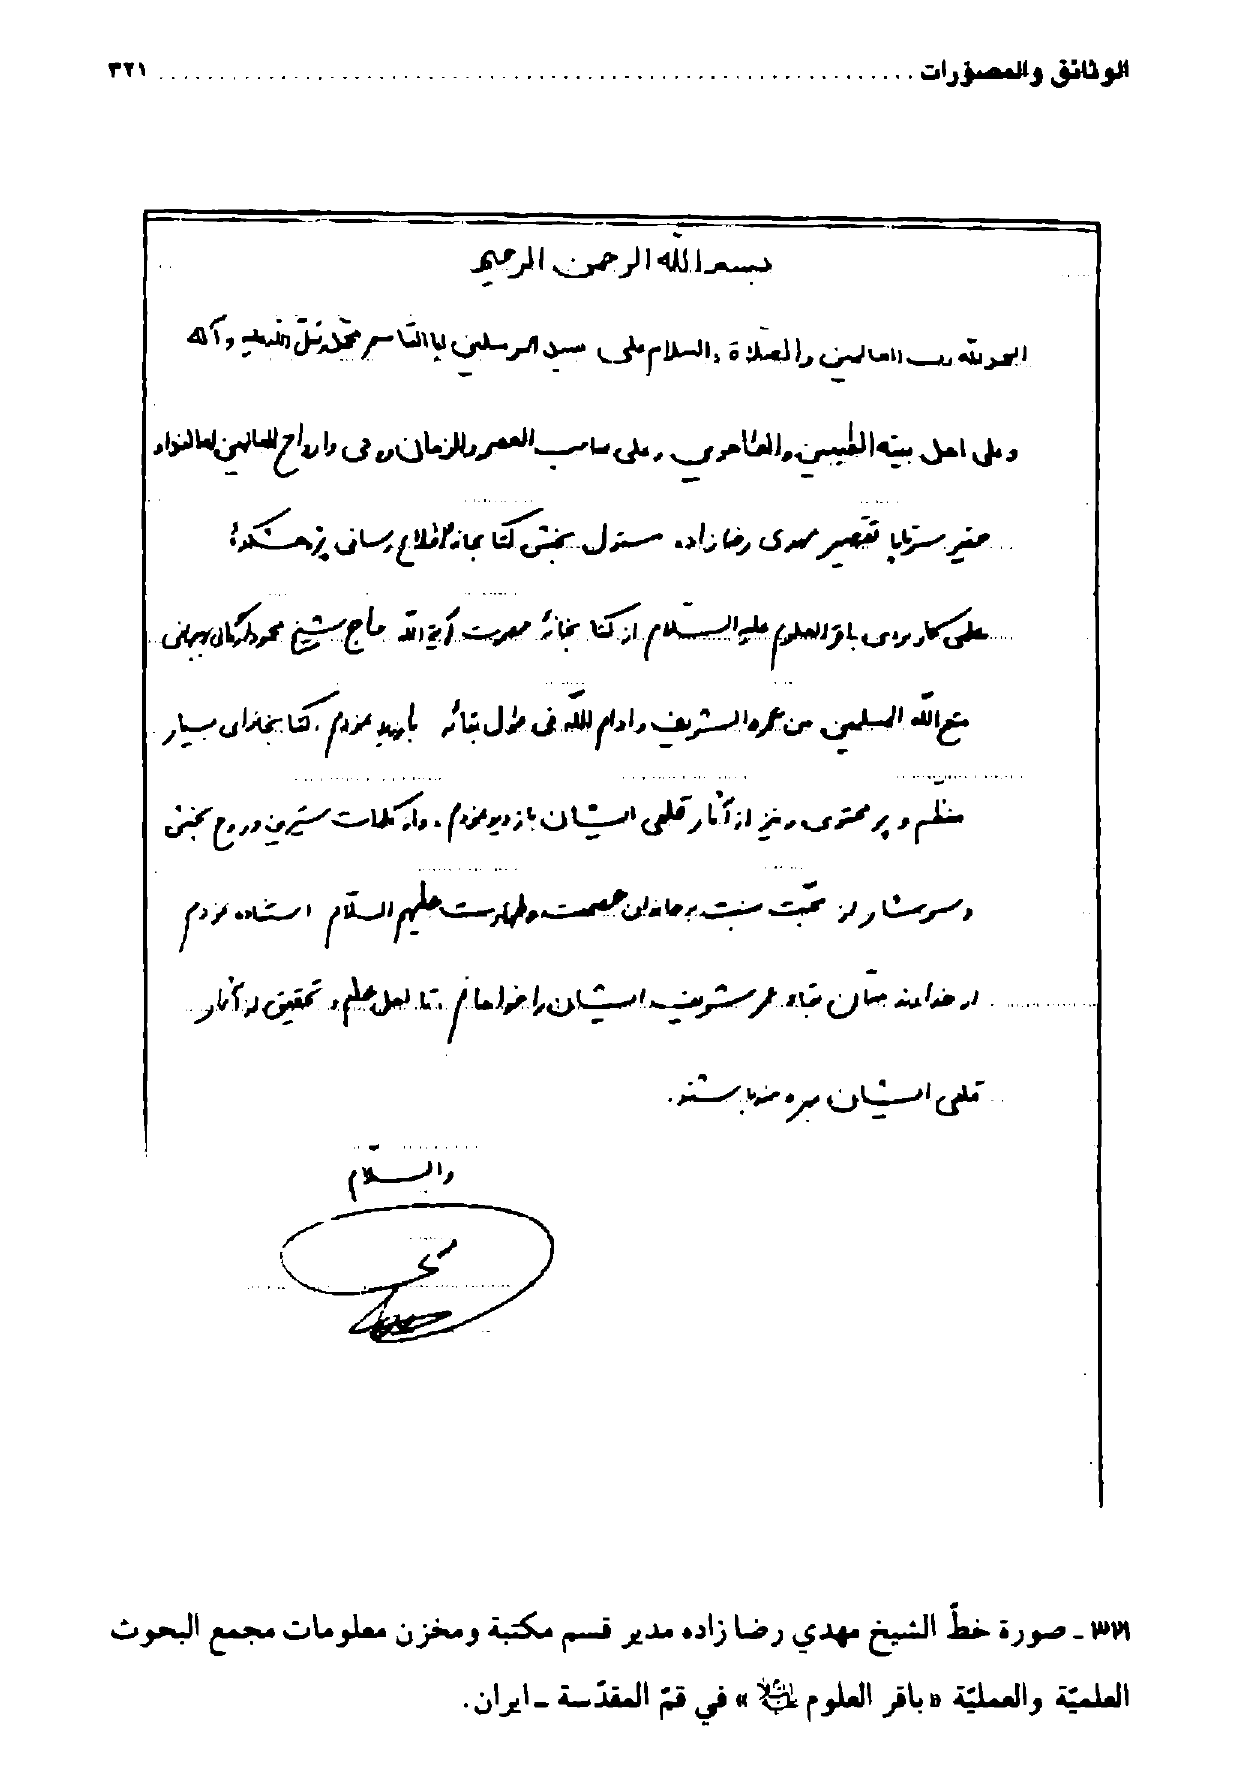 الوثائق والمصوّرات ........ ٣٢١
بسم الله الرحمن الرحيم
الحمد لله رب العالمين والصلاة والسلام على سيد المرسلين ابا القاسم محمد صلّى الله عليه وآله
وعلى اهل بيته الطيبين والطاهرين وعلى صاحب العصر والزمان روحى وارواح العالمين لها الفداء
حقیر سرتاپا تقصیر مهدی رضازاده مسئول بخش کتابخانه و اطلاع رسانی پژوهشکدهٔ
علمی کاربردی باقر العلوم علیه السلام از کتابخانهٔ حضرت آیة الله حاج شیخ محمود ارکانی بهبهانی
متع الله المسلمین من عمره الشریف وادام الله فی طول بقائه بازدید نمودم، کتابخانه‌ای بسیار
منظّم و پر محتوی و نیز از آثار قلمی ایشان بازدید نمودم. واز کلمات شیرین و روح بخش
و سرشار از محبّت نسبت به خاندان عصمت و طهارت علیهم السلام استفاده نمودم
از خداوند منّان بقاء عمر شریف ایشان را خواهانم تا اهل علم و تحقیق از آثار
قلمی ایشان بهره مند باشند.
والسلام
٣٢١ ـ صورة خطّ الشيخ مهدي رضا زاده مدير قسم مكتبة ومخزن معلومات مجمع البحوث
العلميّة والعمليّة «باقر العلوم عليه السلام» في قمّ المقدّسة ـ ايران.